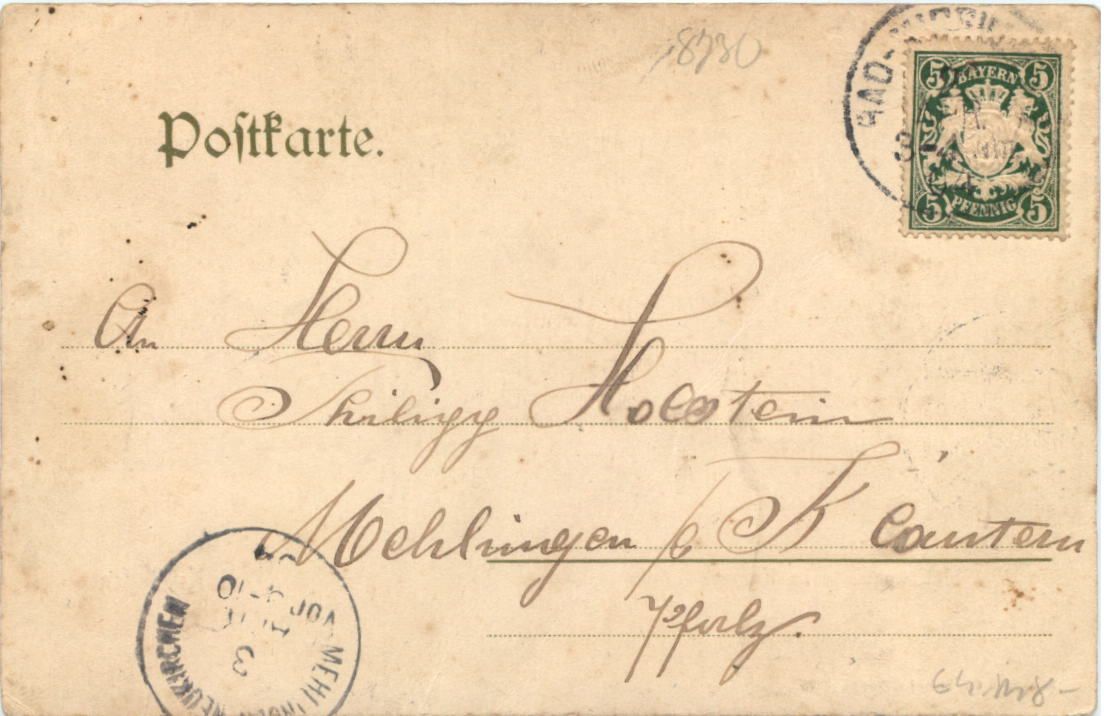 8730
BAYERN
5 5
5 5
PFENNIG
Postkarte.
An Herrn
Philipp Holstein
Mehlingen b/ K lautern
Pfalz.
MEHLINGEN NEUKIRCHEN
3
VOR 9-10